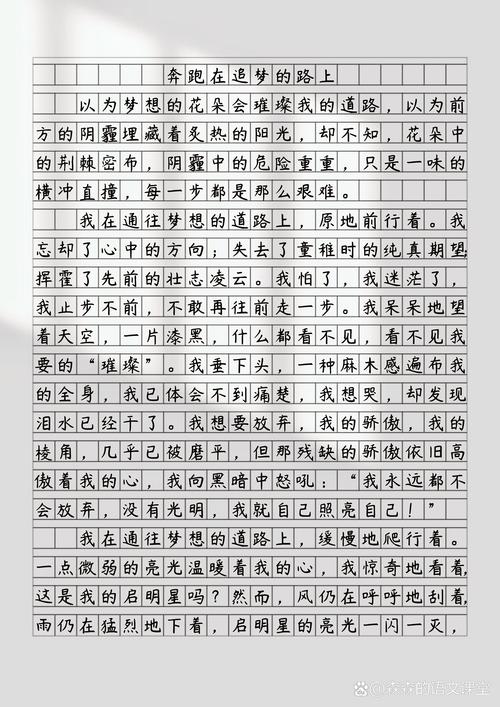 奔跑在追梦的路上
以为梦想的花朵会璀璨我的道路，以为前
方的阴霾埋藏着炙热的阳光，却不知，花朵中
的荆棘密布，阴霾中的危险重重，只是一味的
横冲直撞，每一步都是那么艰难。
我在通往梦想的道路上，原地前行着。我
忘却了心中的方向；失去了童稚时的纯真期望，
挥霍了先前的壮志凌云。我怕了，我迷茫了，
我止步不前，不敢再往前走一步。我呆呆地望
着天空，一片漆黑，什么都看不见，看不见我
要的“璀璨”。我垂下头，一种麻木感遍布我
的全身，我已体会不到痛楚，我想哭，却发现
泪水已经干了。我想要放弃，我的骄傲，我的
棱角，几乎已被磨平，但那残缺的骄傲依旧高
傲着我的心，我向黑暗中怒吼：“我永远都不
会放弃，没有光明，我就自己照亮自己！”
我在通往梦想的道路上，缓慢地爬行着。
一点微弱的亮光温暖着我的心，我惊奇地看着，
这是我的启明星吗？然而，风仍在呼呼地刮着，
雨仍在猛烈地下着，启明星的亮光一闪一灭，
@森森的语文课堂